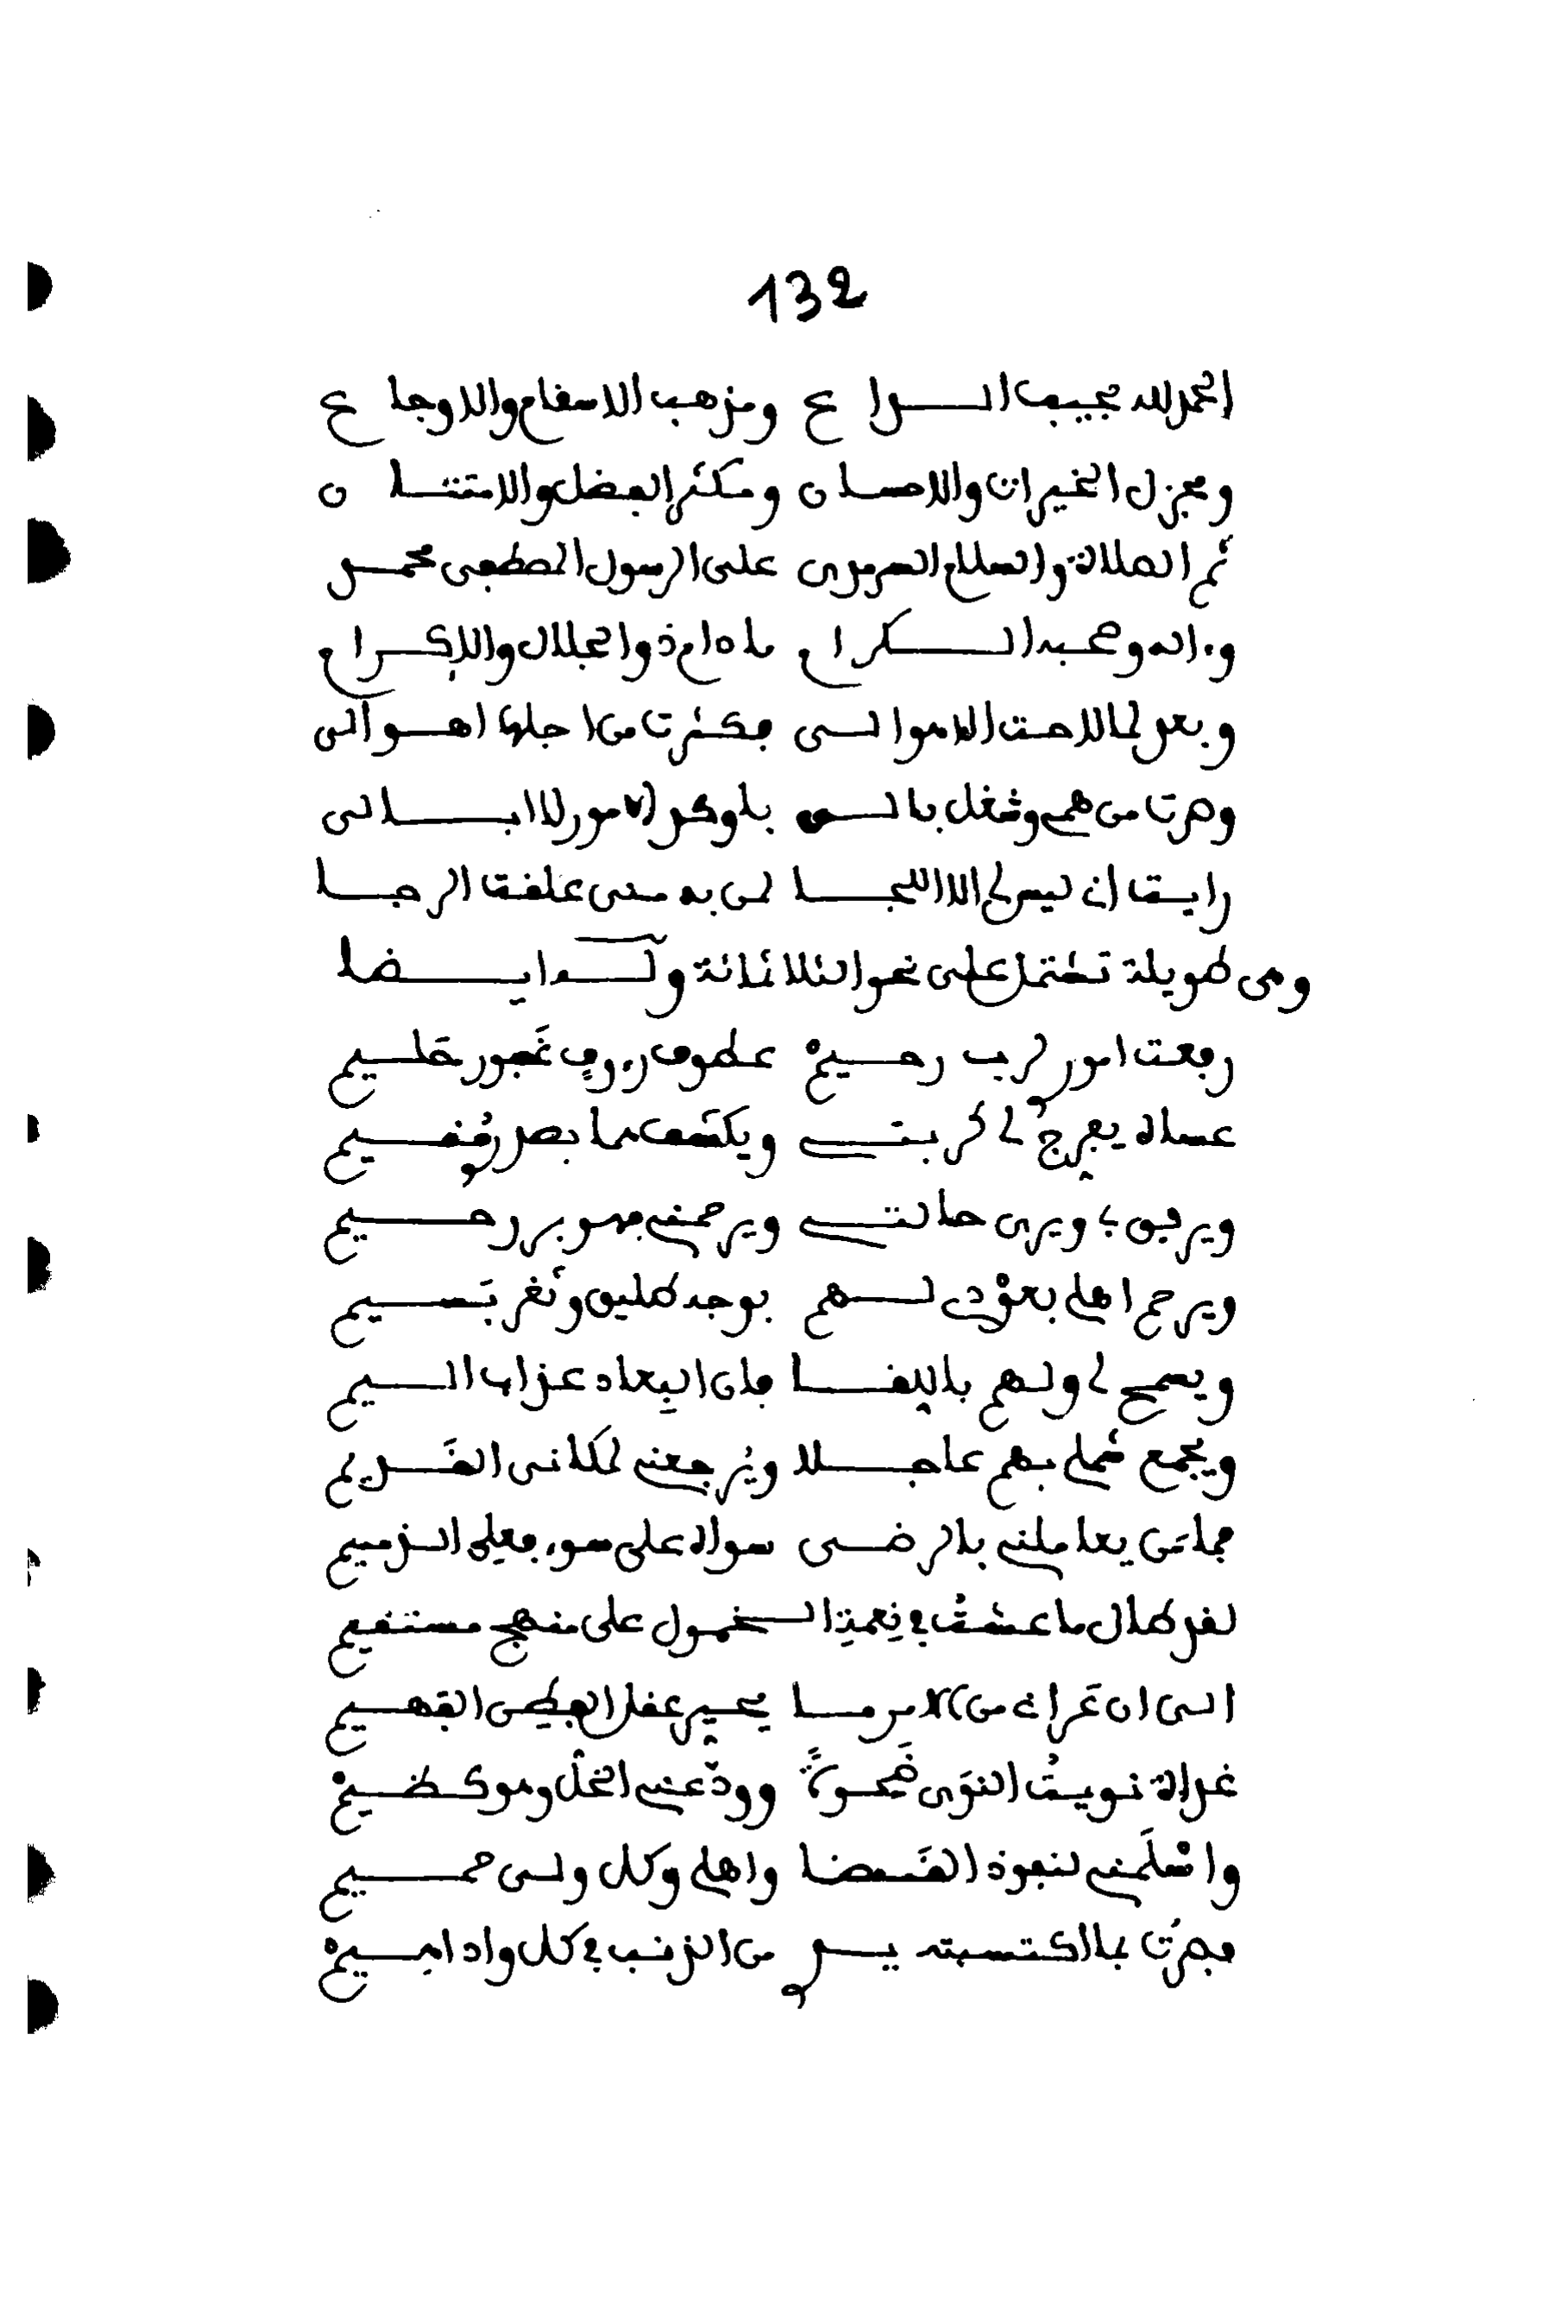 132
الحمد لله مجيب الداع ومذهب الاسقام والاوجاع
ومجزل الخيرات والاحسان ومكثر الفضل والامتنان
ثم الصلاة والسلام السرمدى على الرسول المصطفى محمد
وءاله وصحبه الكرام ما دام ذو الجلال والإكرام
وبعد لما لاحت الاموالى فكثرت من اجلها اهوالى
وصرت من همى وشغل بالى بلوكد الامور لا ابالى
رايت ان ليس لى الا اللجا لمن به منى علقت الرجا
وهى طويلة تشتمل على نحو الثلاثمائة وله ايضا
رفعت امورى لرب رحيم عطوف رءوف غَفور حَليم
عساه يفرج لى كربتى ويكشف ما بصدرى مُقيم
ويرفق بى ويرى حالتى ويرحمنى فهو بر رحيم
ويرحم اهلى بعوْدى لهم بوجه طليق وثَغر بَسيم
ويسمح لى ولهم باللقا فان البِعاد عذاب اليم
ويجمع شَملى بهم عاجلا ويُرجعنى لمكانى القَديم
فما مَن يعاملنى بالرضى سواه على سوء فعلى الذميم
لقد طال ما عشتُ فى نِعمةِ الخمول على منهج مستقيم
الى ان عَرانى من الامر ما يحيِر عقل الفطِن الفهيم
غداة نويتُ النوَى ضَحوةً وودّعنى الخلّ وهو كظيم
واسْلَمنى لنفوذ القَضا واهلى وكل ولى حميم
فصرُت بما اكتسبته يدى من الذنب فى كل واد اهيم